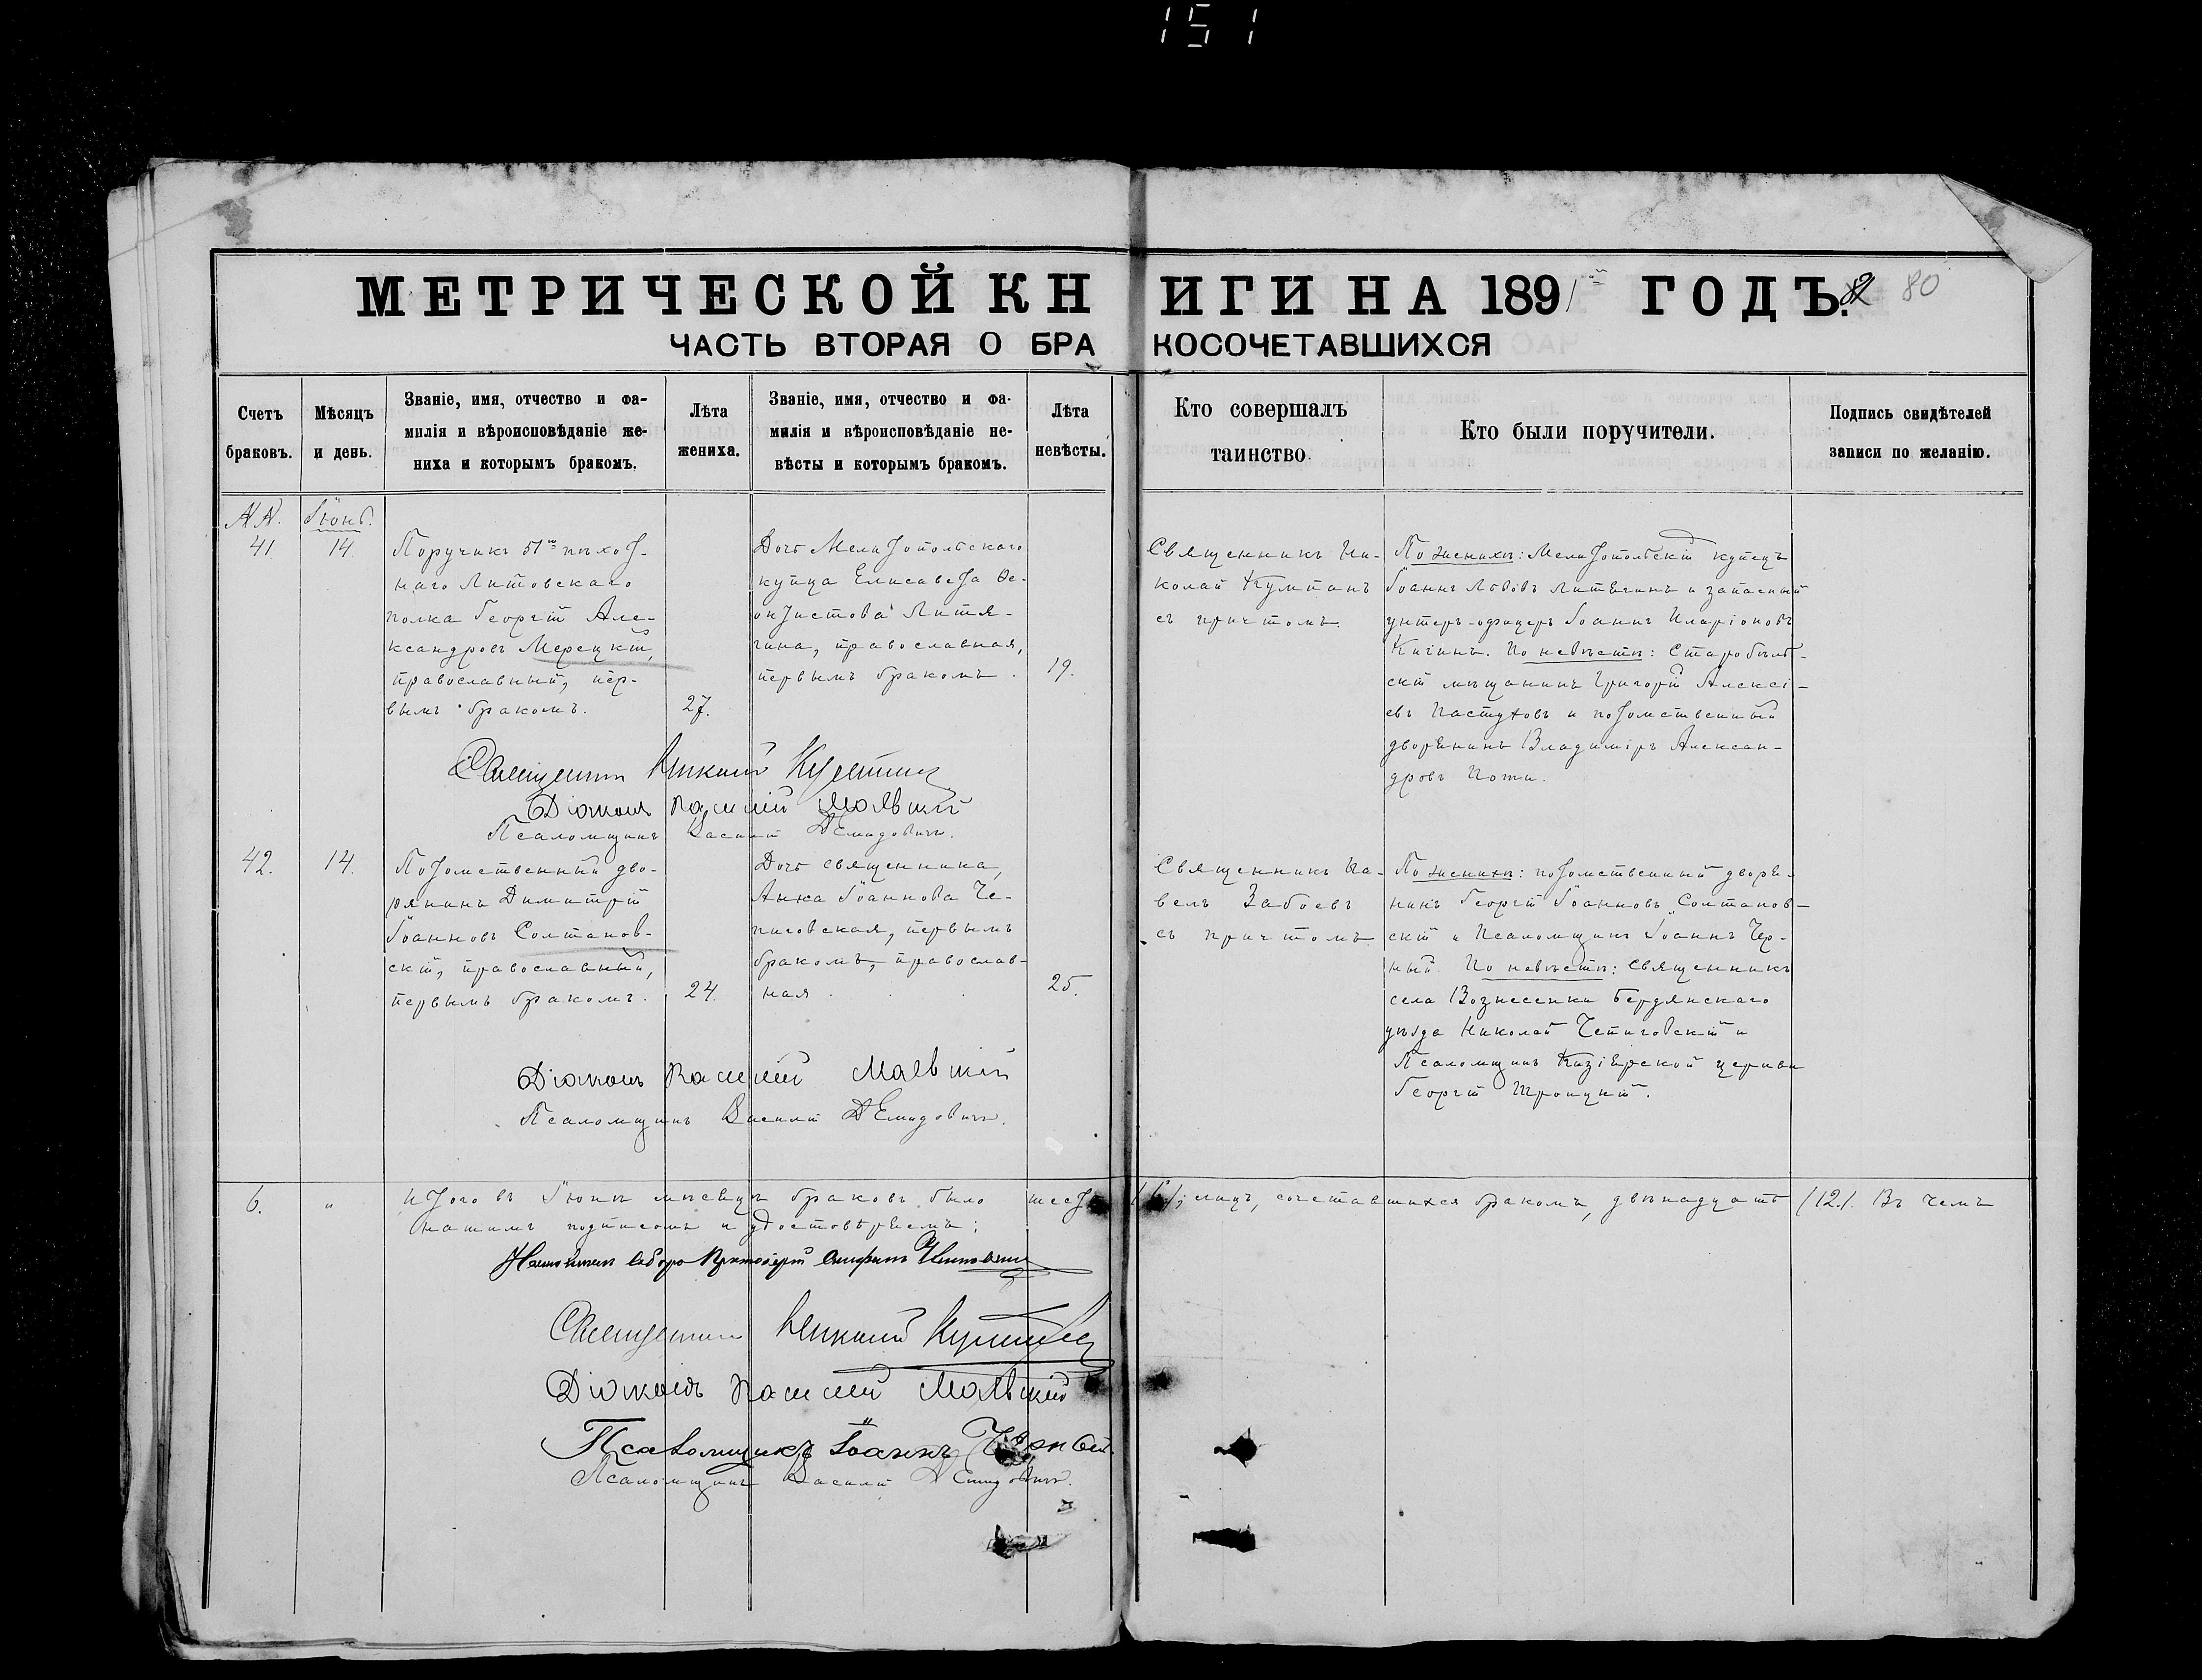 151
МЕТРИЧЕСКОЙ КНИГИ НА 1891й ГОДЪ. 80
ЧАСТЬ ВТОРАЯ О БРАКОСОЧЕТАВШИХСЯ
Счетъ браковъ.
Мѣсяцъ и день.
Званіе, имя, отчество и фа-
милія и вѣроисповѣданіе же-
ниха и которымъ бракомъ.
Лѣта
жениха.
Званіе, имя, отчество и фа-
милія и вѣроисповѣданіе не-
вѣсты и которымъ бракомъ.
Лѣта
невѣсты.
Кто совершалъ
таинство.
Кто были поручители.
Подпись свидѣтелей
записи по желанію.
№№. Іюнь.
41. 14.
Поручикъ 51го пѣхот-
наго Литовскаго
полка Георгій Але-
ксандровъ Мерецкій,
православный, пер-
вымъ бракомъ.
27.
Дочь Мелитопольскаго
купца Елисавета Ѳе-
октистова Литя-
гина, православная,
первымъ бракомъ.
19.
Священникъ Ни-
колай Кумпанъ
съ причтомъ.
По женихѣ: Мелитопольскій купецъ
Іоаннъ Львовъ Литягинъ и запасный
унтеръ-офицеръ Іоаннъ Иларіоновъ
Кигинъ. По невѣстѣ: Старобѣль-
скій мѣщанинъ Григорій Алексі-
евъ Пастуховъ и потомственный
дворянинъ Владиміръ Алексан-
дровъ Поти.
Священникъ Николай Кумпанъ
Діаконъ Василій
Псаломщикъ Василій Демидовичъ.
42. 14.
Потомственный дво-
рянинъ Димитрій
Іоанновъ Солтанов-
скій, православный,
первымъ бракомъ.
24.
Дочь священника,
Анна Іоаннова Че-
пиговская, первымъ
бракомъ, православ-
ная.
25.
Священникъ Па-
велъ Забоевъ
съ причтомъ
По женихѣ: потомственный дворя-
нинъ Георгій Іоанновъ Солтанов-
скій и Псаломщикъ Іоаннъ Чер-
ный. По невѣстѣ: Священникъ
села Вознесенки Бердянскаго
уѣзда Николай Чепиговскій и
Псаломщикъ Кизіярской церкви
Георгій Троицкій.
Діаконъ Василій
Псаломщикъ Василій Демидовичъ.
6. " Итого въ Іюнѣ мѣсяцѣ браковъ было шесть /6/; лицъ, сочетавшихся бракомъ, двѣнадцать /12./. Въ чемъ
нашимъ подписомъ и удостовѣряемъ:
Настоятель собора Протоіерей
Священникъ Николай Кумпанъ
Діаконъ Василій
Псаломщикъ Іоаннъ Черный.
Псаломщикъ Василій Демидовичъ.